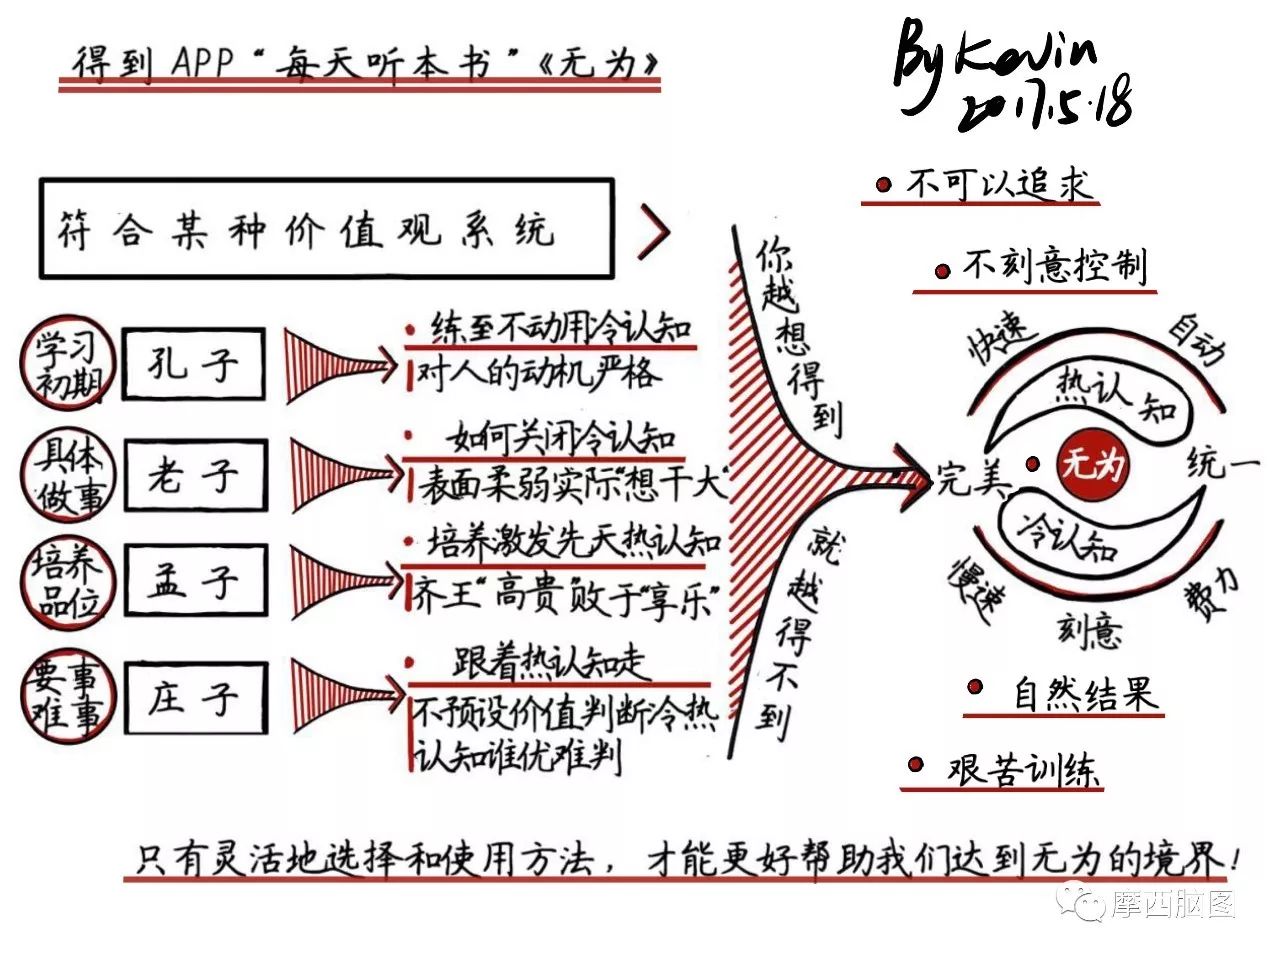 得到 APP “每天听本书”《无为》
By Kevin
2017.5.18
符合某种价值观系统
学习
初期
孔子
• 练至不动用冷认知
对人的动机严格
具体
做事
老子
• 如何关闭冷认知
表面柔弱实际“想干大“
培养
品位
孟子
• 培养激发先天热认知
齐王“高贵”败于“享乐”
要事
难事
庄子
• 跟着热认知走
不预设价值判断冷热
认知谁优难判
你越想得到
就越得不到
• 不可以追求
• 不刻意控制
快速
自动
热认知
完美
• 无为
统一
冷认知
慢速
刻意
费力
• 自然结果
• 艰苦训练
只有灵活地选择和使用方法，才能更好帮助我们达到无为的境界！
摩西脑图